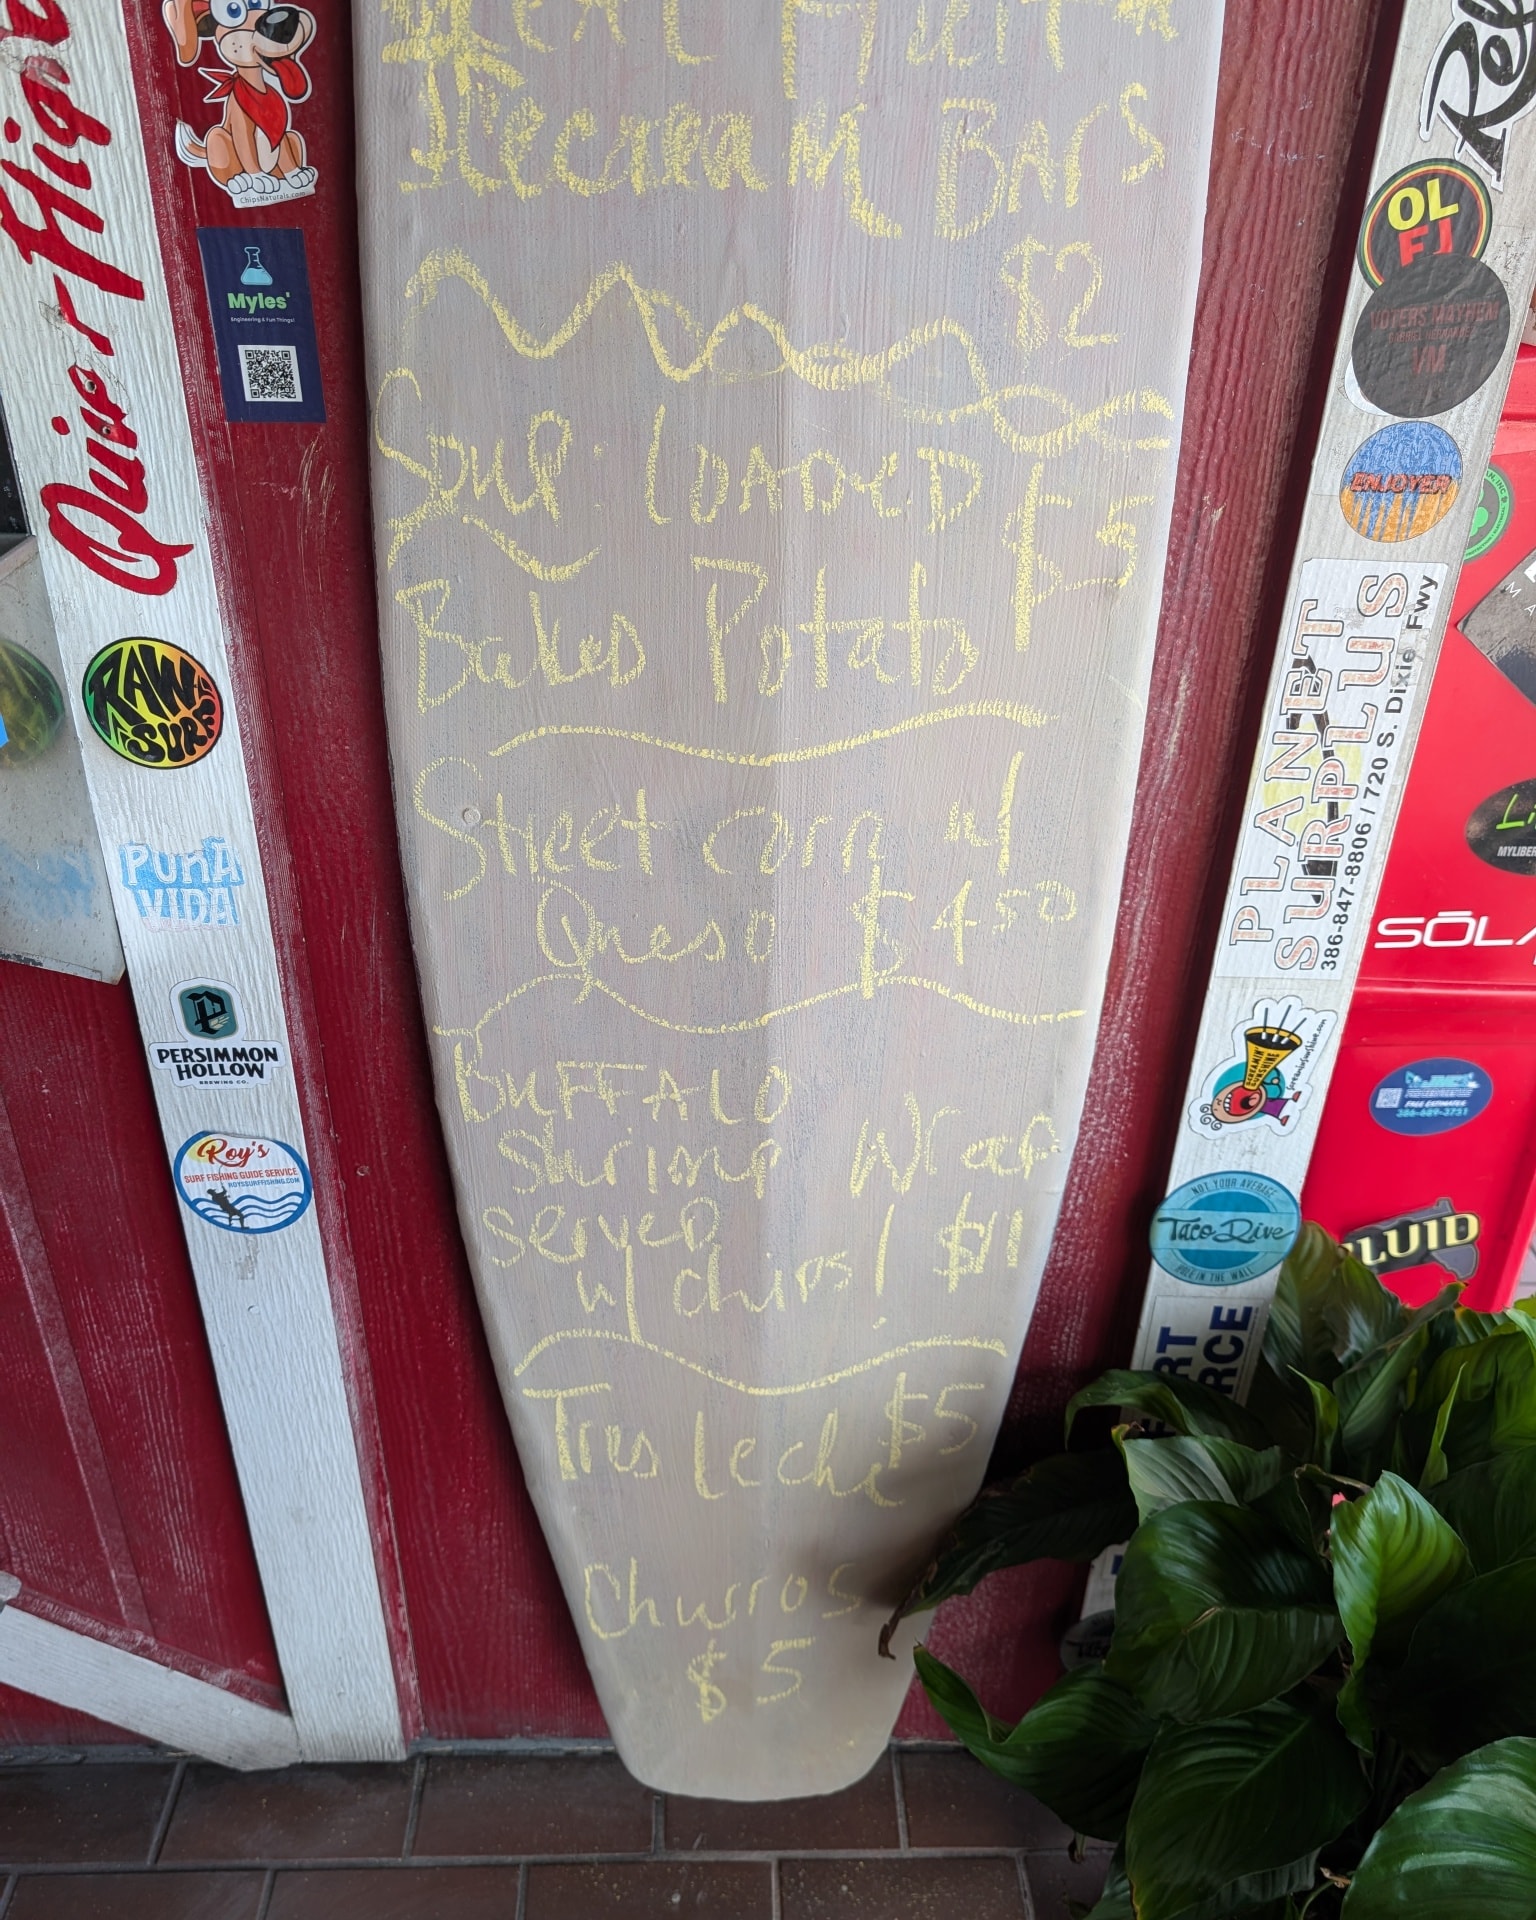 Real Fruit
Icecream Bars
$2
Soup: Loaded
$5
Baked Potato
Street corn w/
Queso $4.50
Buffalo
Shrimp Wrap
served
w/ chips! $11
Tres Leche $5
Churros
$5
ChipsNaturals.com
Myles'
Engineering & Fun Things!
RAW
SURF
PURA
VIDA
PERSIMMON
HOLLOW
BREWING CO.
Roy's
SURF FISHING GUIDE SERVICE
ROYSSURFFISHING.COM
OL
FJ
VOTERS MAYHEM
VM
ENJOYER
PLANET
SURPLUS
386-847-8806 / 720 S. Dixie Fwy
SCREAMIN'
SUNSHINE
screaminsunshine.com
NOT YOUR AVERAGE
Taco Dive
HOLE IN THE WALL
SŌLA
FREE ESTIMATES
386-689-3751
FLUID